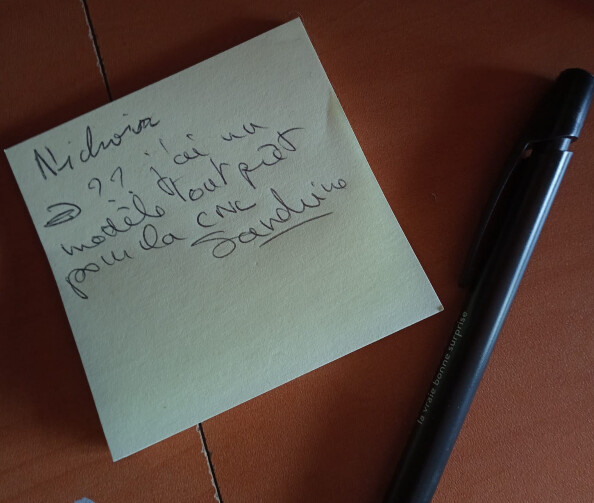 Nichoir
→ ?? j'ai un
modèle tout prêt
pour la CNC
Sandrine
la vraie bonne surprise